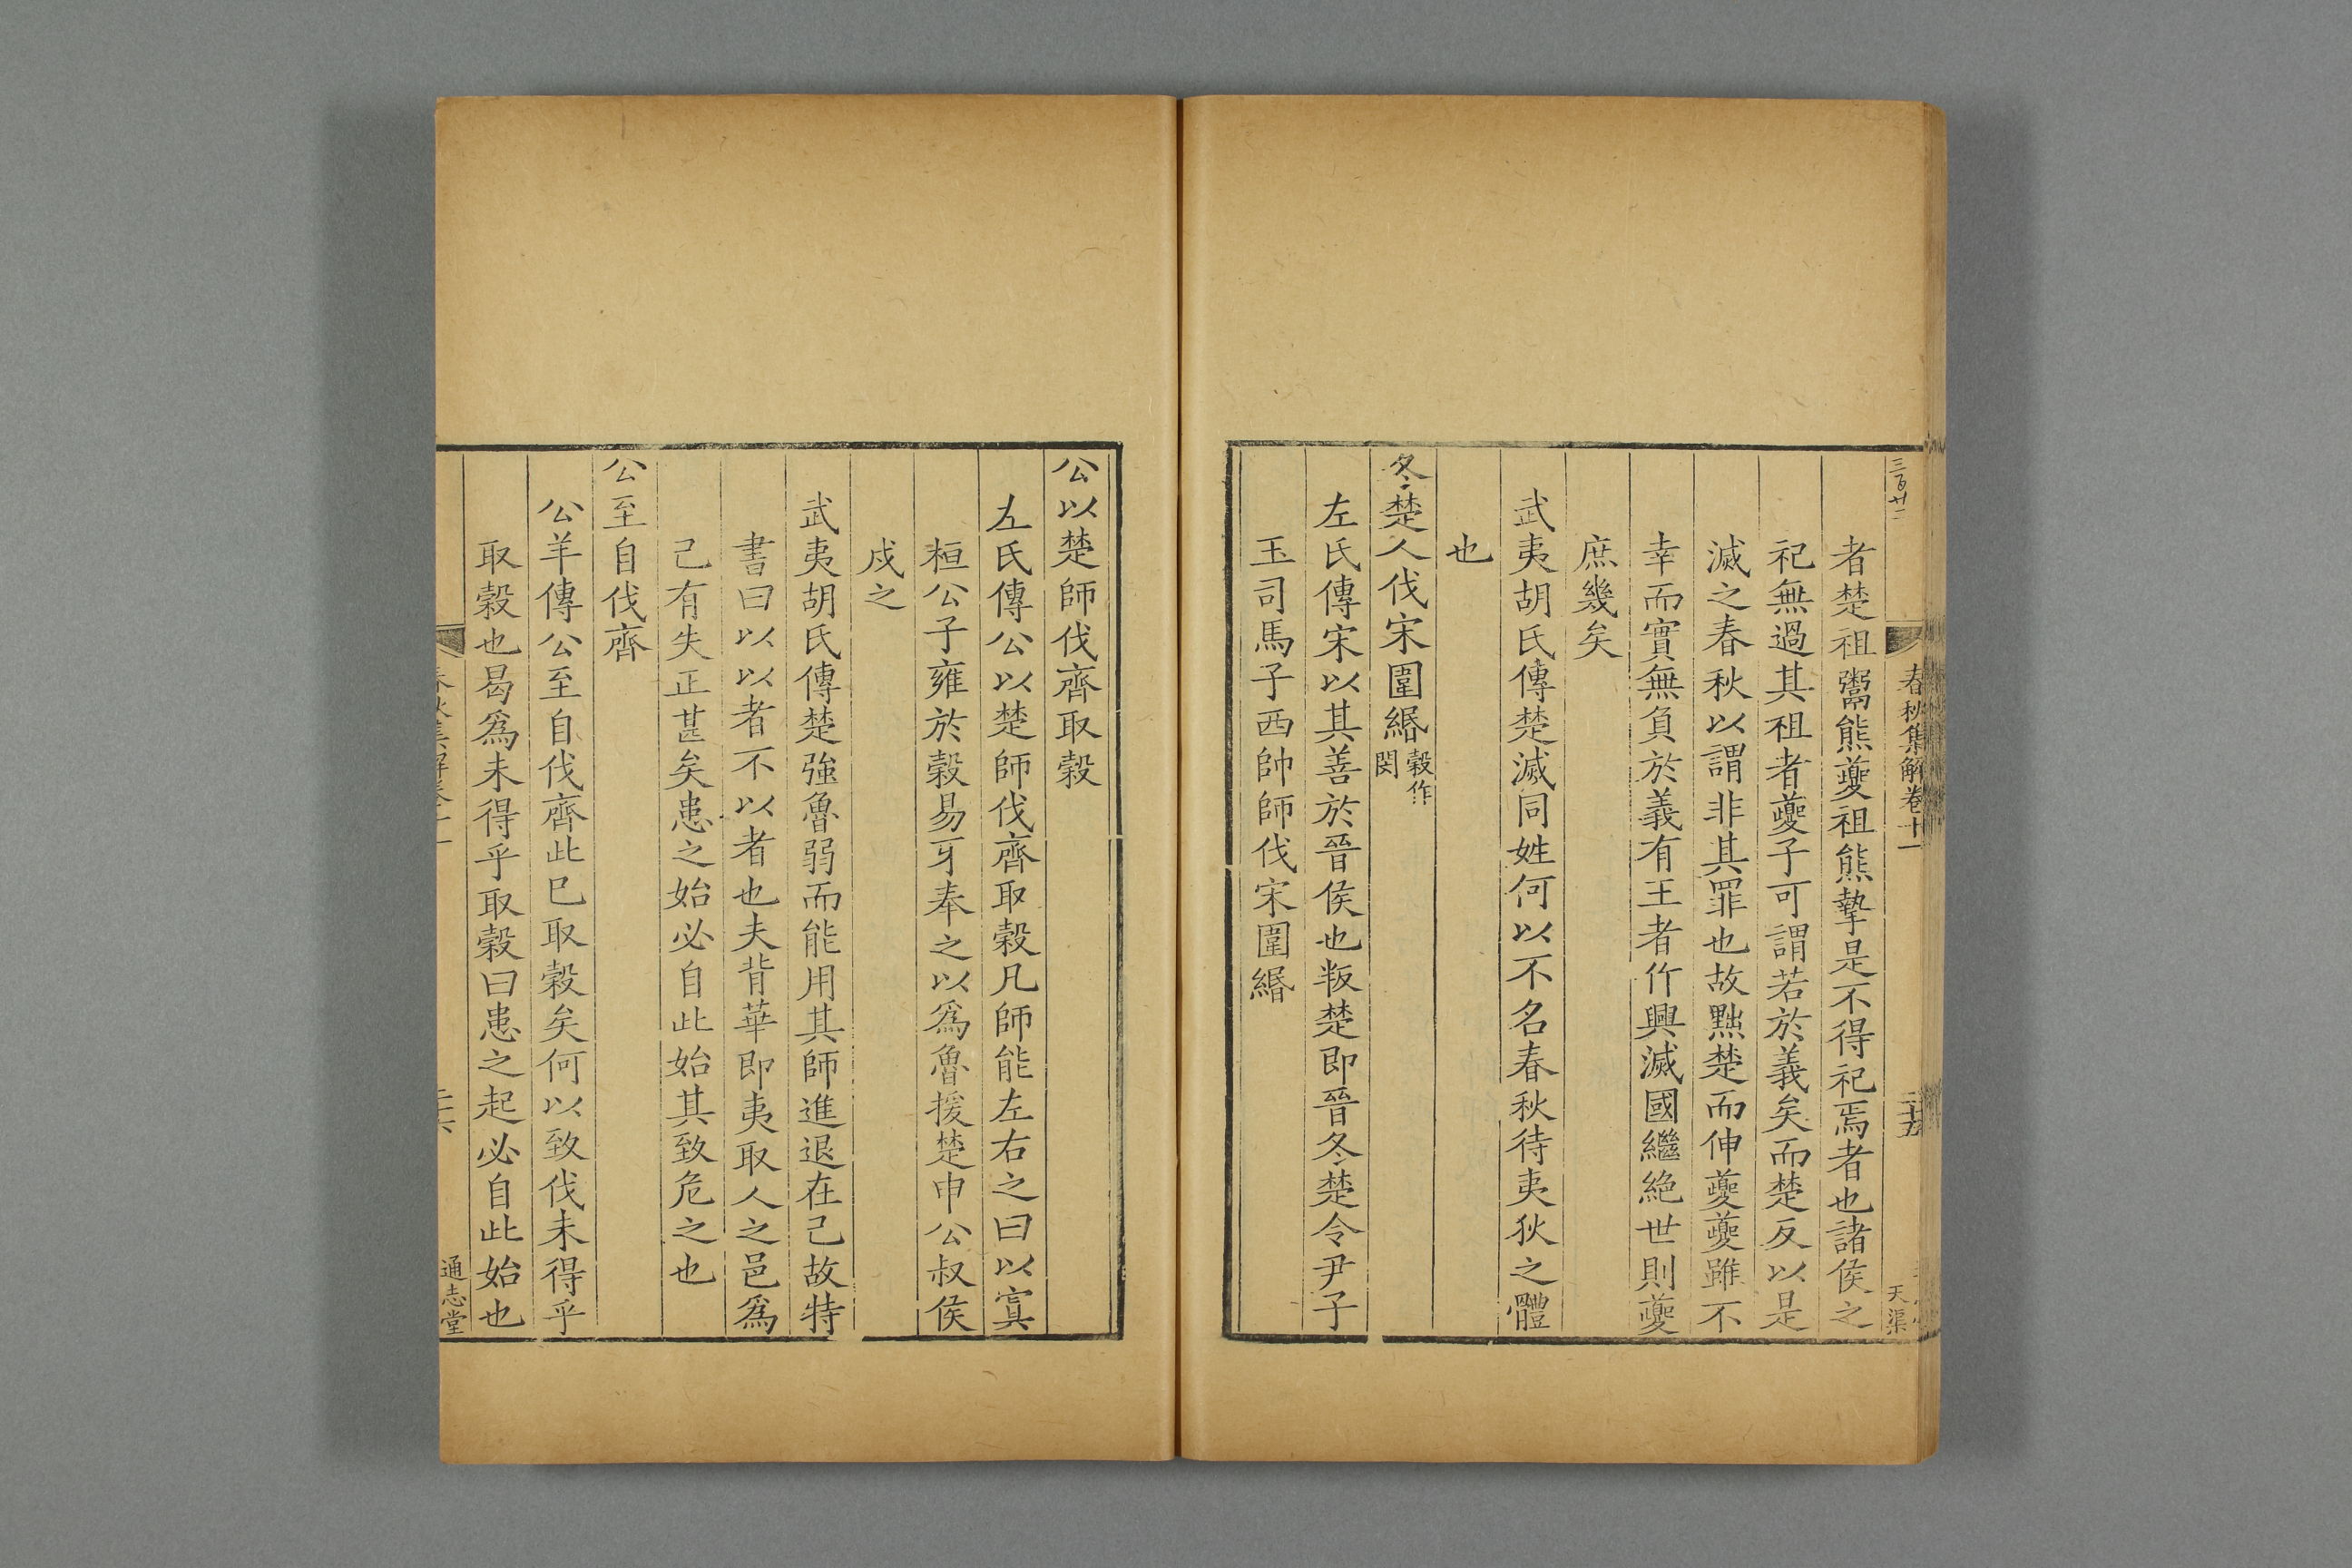 三百廿二
春秋集解卷十一
二十五
天渠
者楚祖鬻熊夔祖熊摯是不得祀焉者也諸侯之
祀無過其祖者夔子可謂若於義矣而楚反以是
滅之春秋以謂非其罪也故黜楚而伸夔夔雖不
幸而實無負於義有王者作興滅國繼絶世則夔
庶幾矣
武夷胡氏傳楚滅同姓何以不名春秋待夷狄之體
也
冬楚人伐宋圍緡穀作閔
左氏傳宋以其善於晉侯也叛楚即晉冬楚令尹子
玉司馬子西帥師伐宋圍緡
公以楚師伐齊取穀
左氏傳公以楚師伐齊取穀凡師能左右之曰以寘
桓公子雍於穀易牙奉之以爲魯援楚申公叔侯
戍之
武夷胡氏傳楚強魯弱而能用其師進退在己故特
書曰以以者不以者也夫背華即夷取人之邑爲
己有失正甚矣患之始必自此始其致危之也
公至自伐齊
公羊傳公至自伐齊此已取穀矣何以致伐未得乎
取穀也曷爲未得乎取穀曰患之起必自此始也
春秋集解卷十一
二十六
通志堂